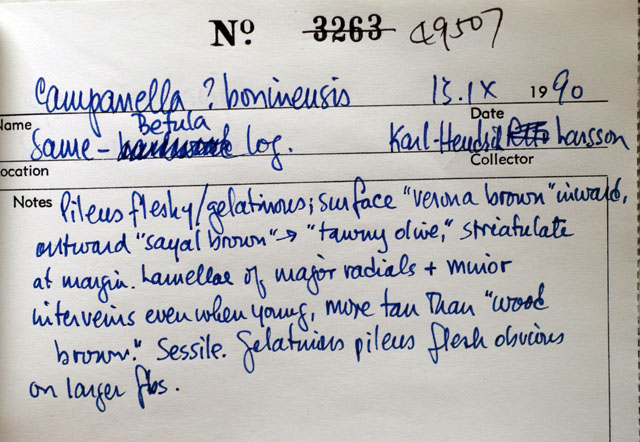 Nº 3263 49507
Campanella ? boninensis 15.IX 1990
Name Date
Betula
Same - hardwood log. Karl-Henrik Larsson
Location Collector
Notes Pileus fleshy/gelatinous; surface "verona brown" inward,
outward "sayal brown" → "tawny olive," striatulate
at margin. Lamellae of major radials + minor
interveins even when young, more tan than "wood
brown." Sessile. Gelatinous pileus flesh obvious
on larger fbs.